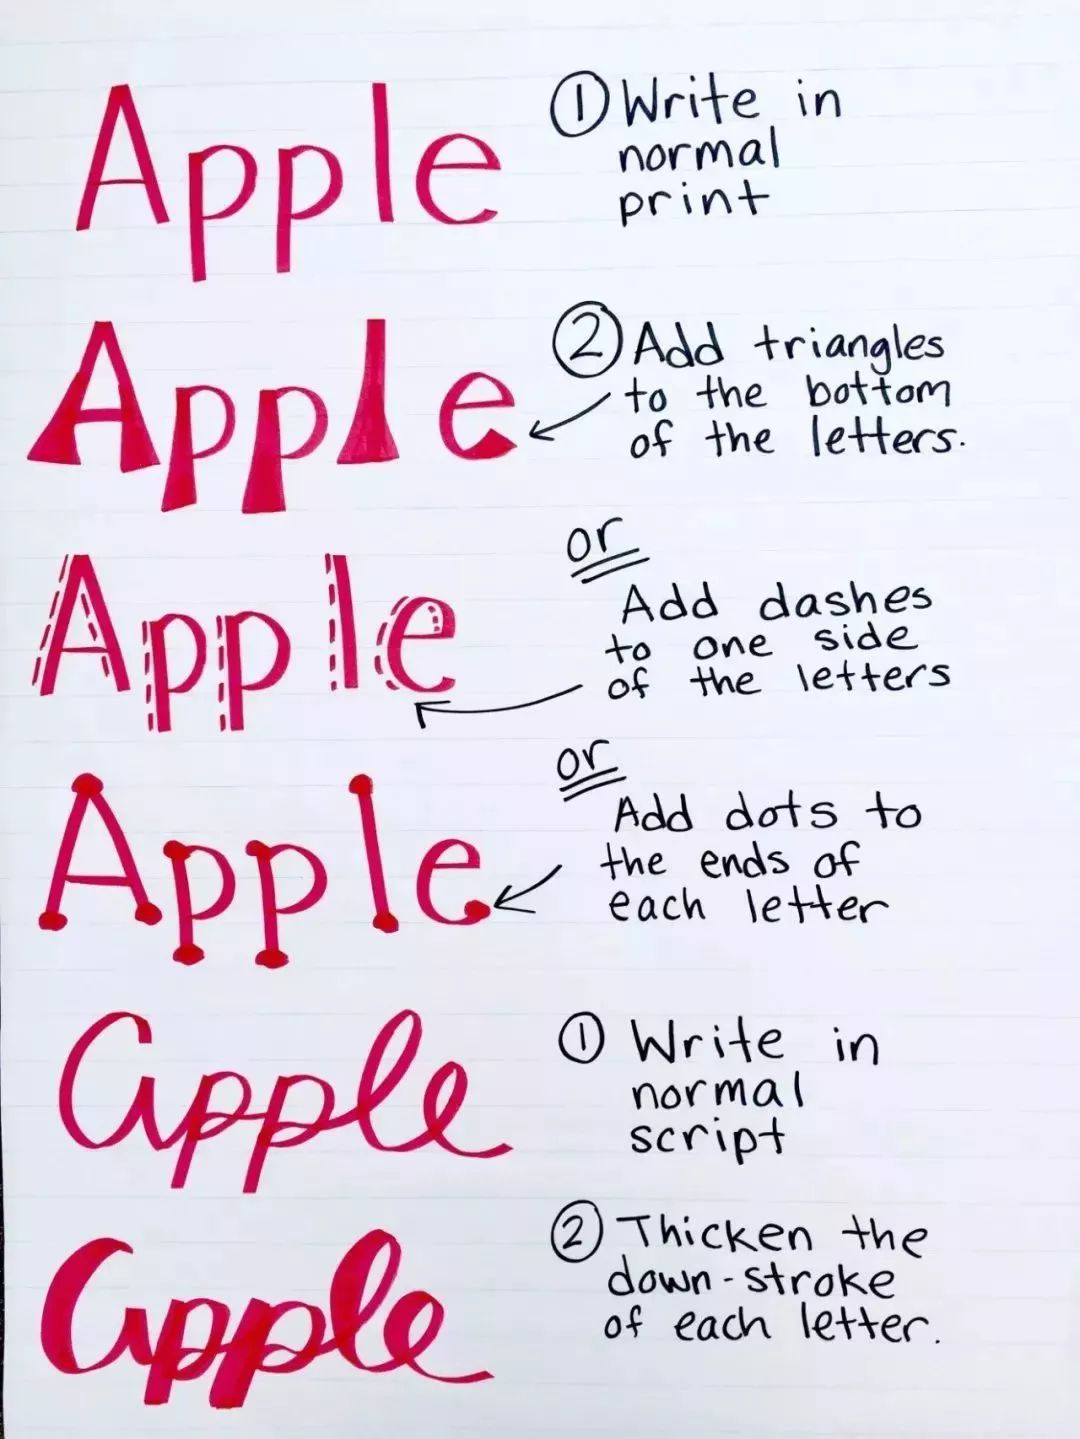 Apple
① Write in
normal
print
Apple
② Add triangles
to the bottom
of the letters.
Apple
or
Add dashes
to one side
of the letters
Apple
or
Add dots to
the ends of
each letter
apple
① Write in
normal
script
apple
② Thicken the
down-stroke
of each letter.